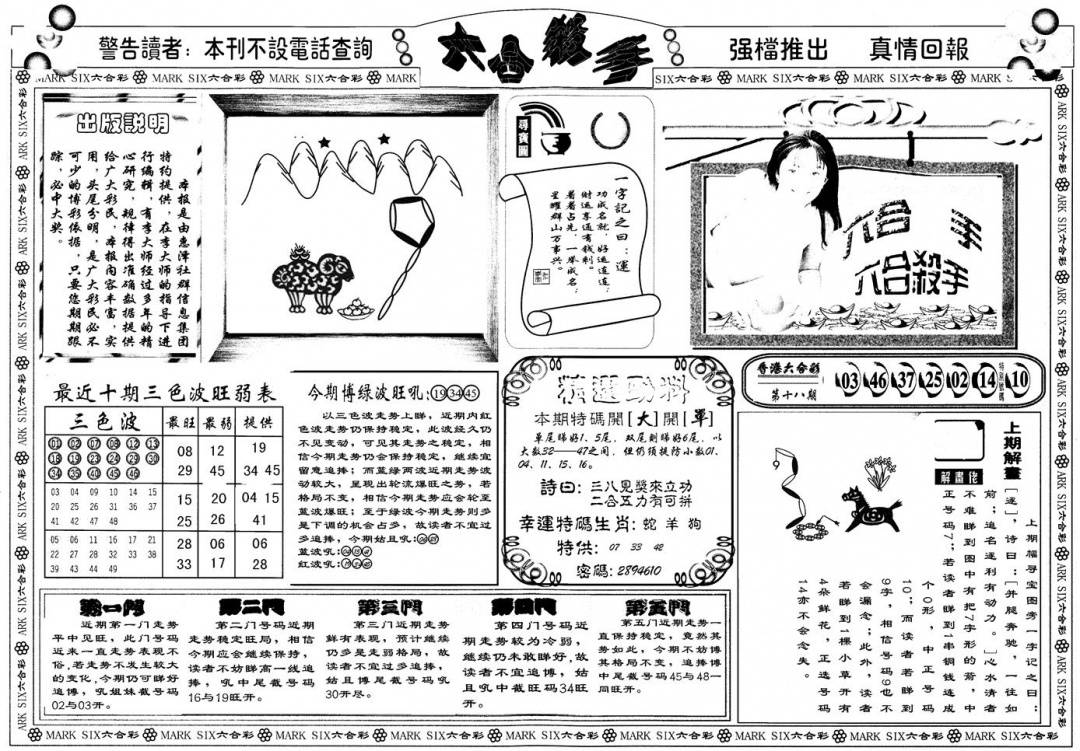 警告讀者：本刊不設電話查詢
六合殺手
强檔推出 真情回報
MARK SIX六合彩
出版説明
本报是由惠泽社群信息集团
特约提供，在李大师的指导下进
行编辑，有李大师经过多年的精
心研究，规律得出准确数据提供
给广大彩民，本报内容丰富，实
用，头尾分明，是广大彩民必不
可少的博彩依据，只要您期期跟
踪，必中大奖。
一字記之曰：運
功成名就，好运连连；
财运享通有钱剩。
着着占先，一举成名；
星耀群山万事兴。
六合 手
六合殺手
香港六合彩
第十八期
03 46 37 25 02 14
特别號碼
10
最近十期三色波旺弱表
三色波 最旺 最弱 提供
01 02 07 08 12 13
18 19 23 24 29 30
34 35 40 45 46
08 12 19
29 45 34 45
03 04 09 10 14 15
20 25 26 31 36 37
41 42 47 48
15 20 04 15
25 26 41
05 06 11 16 17 21
22 27 28 32 33 38
39 43 44 49
28 06 06
33 17 28
今期博绿波旺吼:19 34 45
以三色波走势上睇，近期内红
色波走势仍保持稳定，此波经久仍
不见变动，可见其走势之稳定，相
信今期走势仍会保持稳定，继续宜
留意追捧；而蓝绿两波近期走势波
动较大，呈现出轮流爆旺之势，若
格局不变，相信今期走势应会轮至
蓝波爆旺；至于绿波今期走势则多
是下调的机会占多，故读者不宜过
多追捧，今期姑且吼:
蓝波吼:
红波吼:
精選動料
本期特碼開[大]開[單]
单尾睇好1、5尾，双尾则睇好6尾，以
大数32——47之间，但仍须提防小数01、
04、11、15、16。
詩曰：三八见獎來立功
二合五力有可拼
幸運特碼生肖：蛇 羊 狗
特供： 07 33 42
密碼：2894610
上期解畫
解畫佬
上期幅寻宝图秀一字记之曰：
[逐]，诗曰：[并腿奔驰，一往如
前；追名逐利有动力。]心水清者
不难睇到图中有把7字形的箭，中
正号码7；若读者睇到1串铜钱连成
个10形，中正号码
10；而读者若睇到
9字，相信号码9也不
会漏念；此外，读者
若睇到1棵小草开有
4朵鲜花，正选号码
14亦不会念失。
第一門
近期第一门走势
平中见旺，此门号码
近来一直走势表现不
俗，若走势不发生较大
的变化，今期仍可睇好
追博，吼姐妹截号码
02与03开。
第二門
第二门号码近期
走势稳定旺局，相信
今期应会继续保持，
读者不妨睇高一线追
捧，吼中尾截号码
16与19旺开。
第三門
第三门近期走势
鲜有表现，预计继续
仍多是走弱格局，故
读者不宜过多追捧，
姑且博尾截号码吼
30开尽。
第四門
第四门号码近
期走势较为冷弱，
继续仍未敢睇好，故
读者不宜追博，姑
且吼中截旺码34旺
开。
第五門
第五门近期走势一
直保持稳定，竟然其
势如此，今期不妨博
其格局不变，追捧博
中尾截号码45与48一
同旺开。